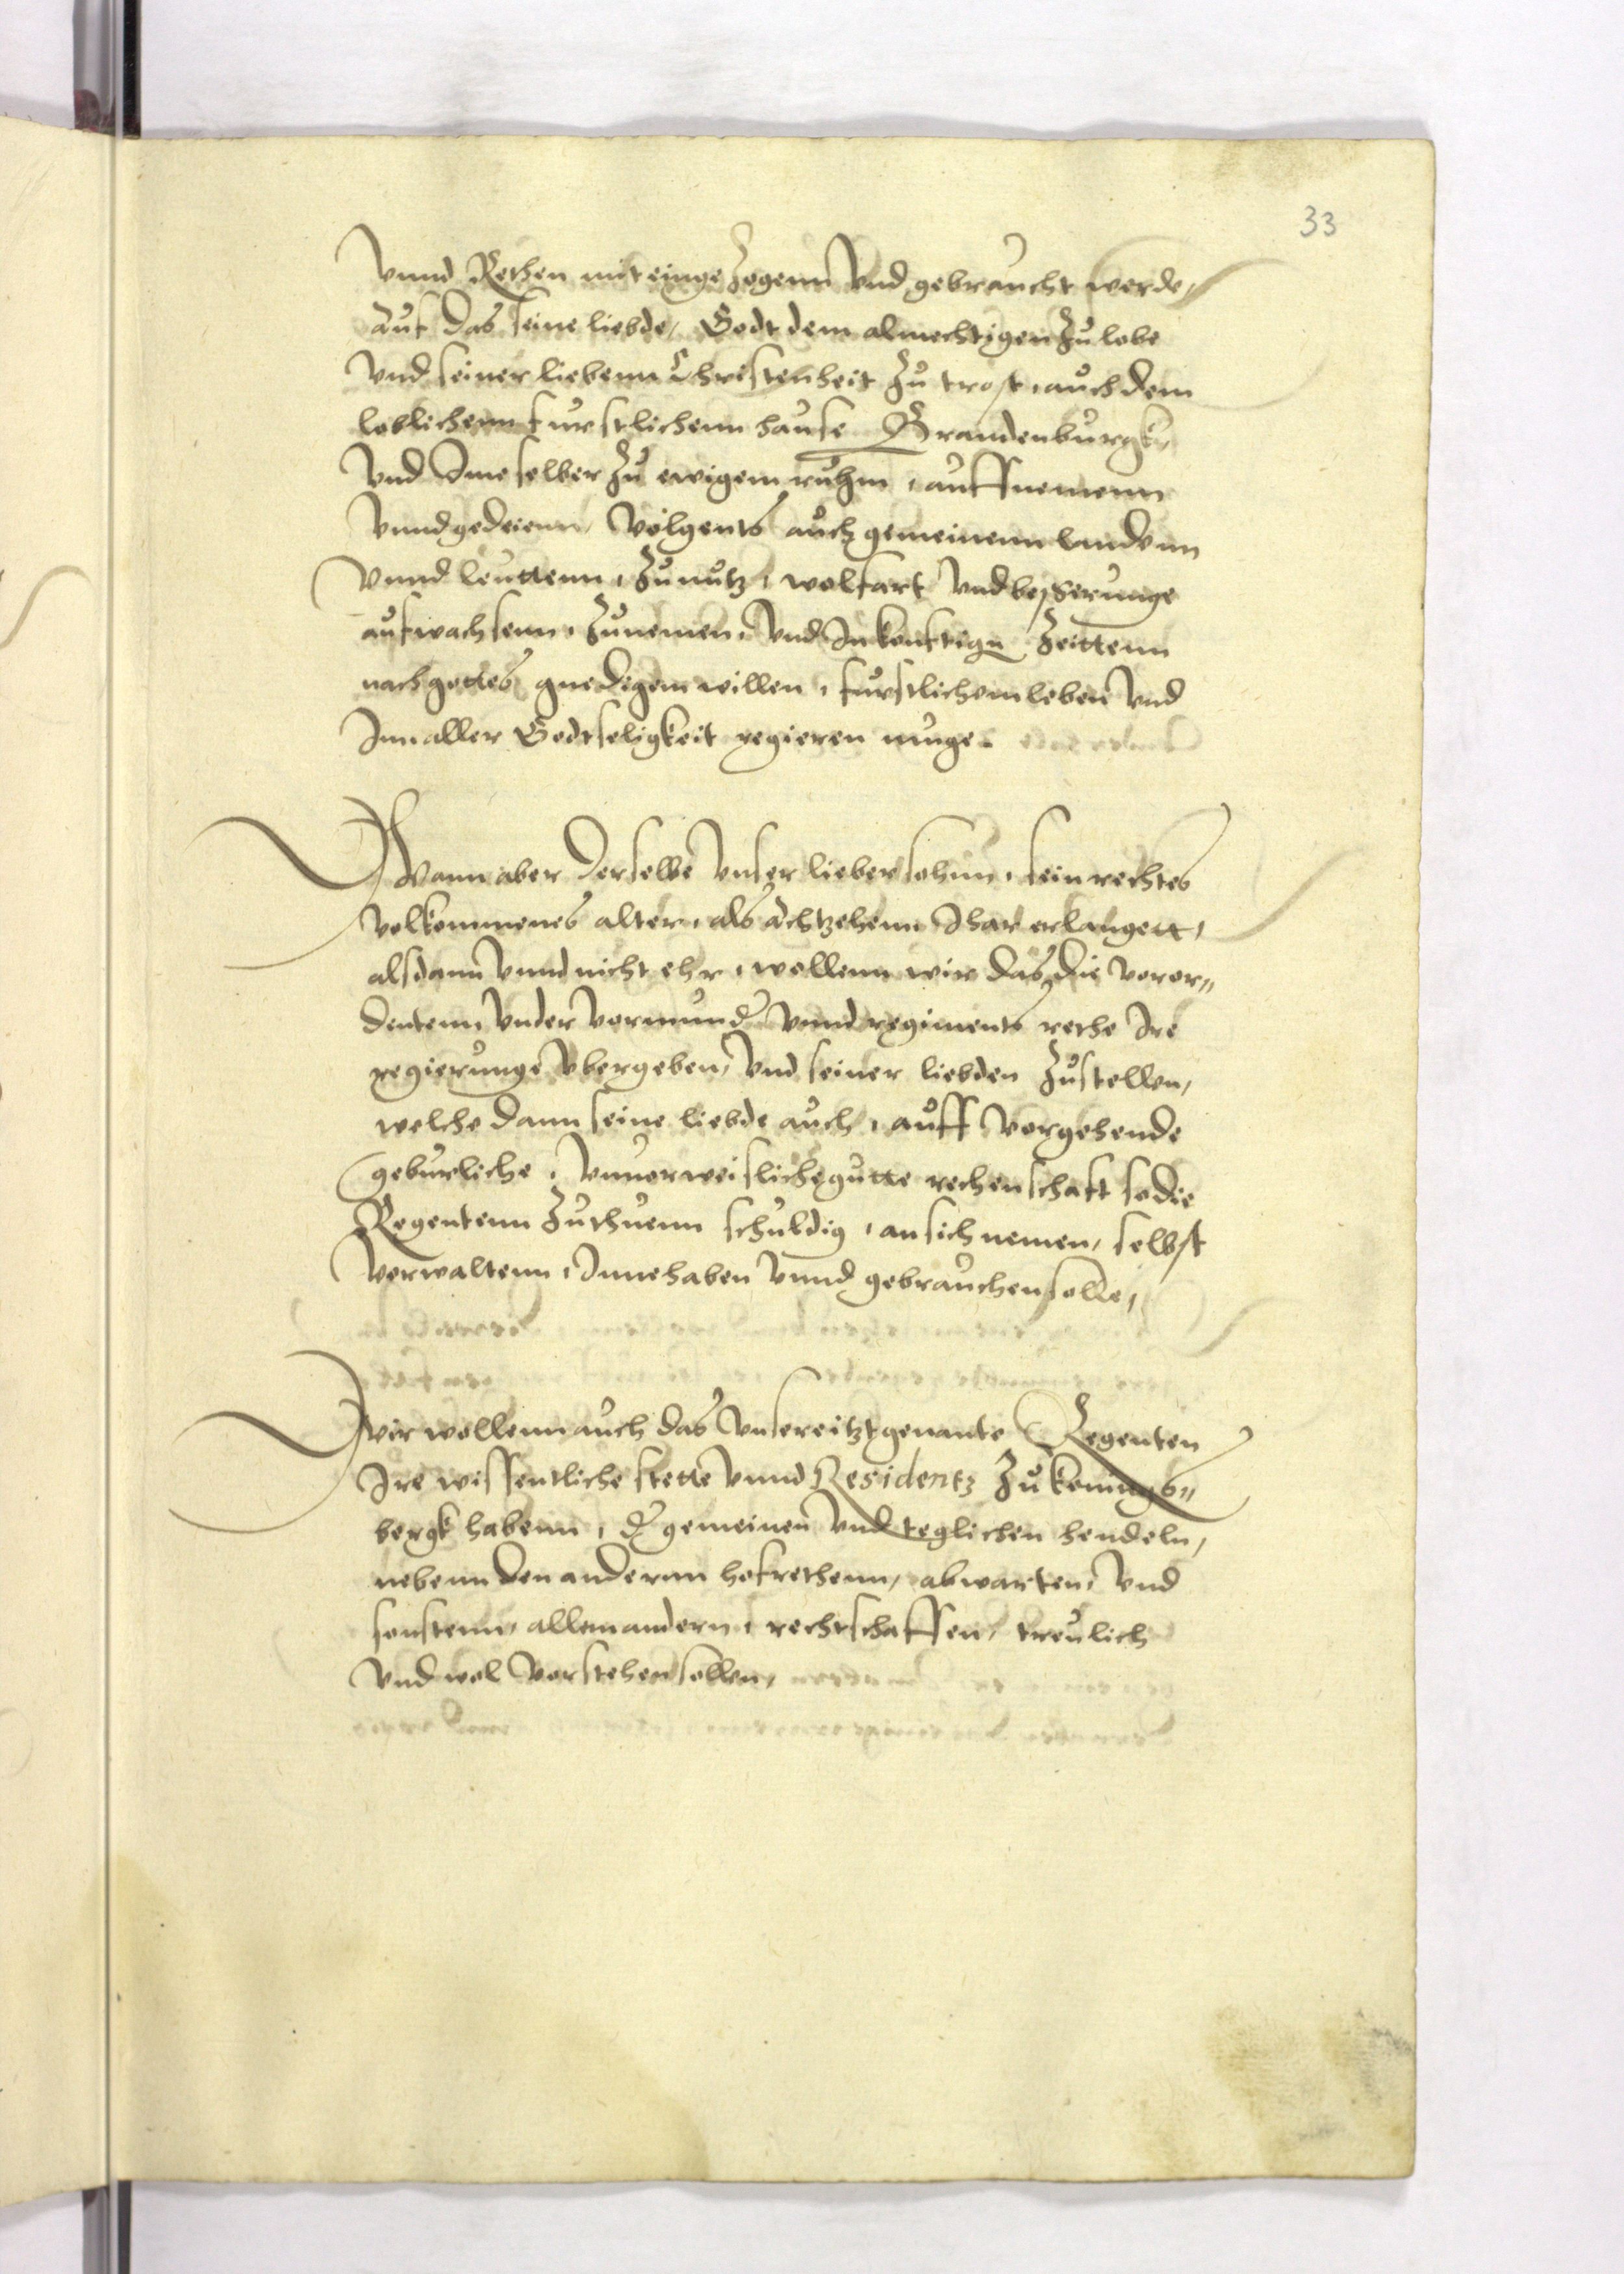 33
Vnnd Rethen mit eingezogenn Vnd gebraucht werde,
Auf das seine liebde, Godt dem almechtigen Zu lobe
Vnd seiner liebenn Christenheit Zu trost, auch dem
loblichenn furstlichenn hause Brandenburgk,
Vnd Ime selber Zu ewigem ruhm, auffnemenn
Vnnd gedeienn, Volgents auch gemeinenn landenn
Vnnd leuttenn, Zu nutz, wolfart Vnd besserunge
aufwachsenn, Zunemen, Vnd In konftign Zeittenn
nach gottes gnedigem willen, furstlichem leben Vnd
Inn aller Godtseligkeit regieren muge.
Wann aber derselbe Vnser lieber sohnn, sein rechtes
Volkommenes alter, als Achtzehenn Ihar erlangett,
alsdann Vnnd nicht ehr, wollenn wir das die Veror„
dentenn Vnder Vormunder Vnnd regiments rethe Ire
regierunge Vbergeben, Vnd seiner liebden Zustellen,
welche dann seine liebde auch, auff Vorgehende
geburliche, Vnuorweisliche gutte rechenschaft so die
Regentenn Zuthuenn schuldig, an sich nemen, selbst
Verwaltenn, Innehaben Vnnd gebrauchen solle,
Wir wollenn auch das Vnsere itztgenante Regenten
Ire wissentliche stette Vnnd Residentz Zu konings„
bergk habenn, der gemeinen Vnd teglichen hendeln,
nebenn den andernn hofrethenn, abwarten, Vnd
sonstenn, allem andern, rechtschaffen, treulich
Vnd wol Vorstehen sollen,